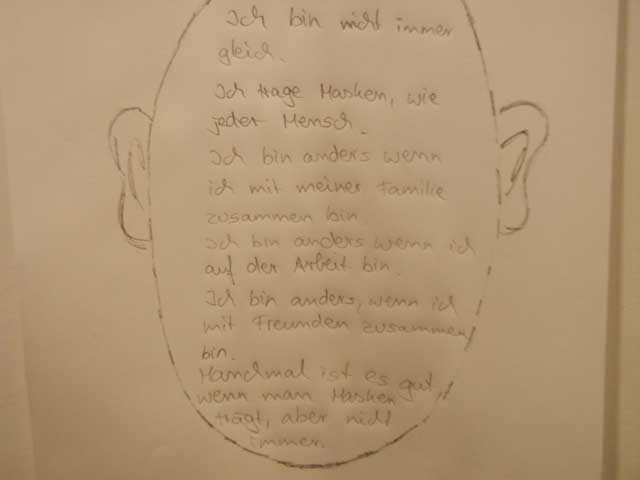 Ich bin nicht immer
gleich.
Ich trage Masken, wie
jeder Mensch.
Ich bin anders wenn
ich mit meiner Familie
zusammen bin.
Ich bin anders wenn ich
auf der Arbeit bin.
Ich bin anders, wenn ich
mit Freunden zusammen
bin.
Manchmal ist es gut,
wenn man Masken
trägt, aber nicht
immer.